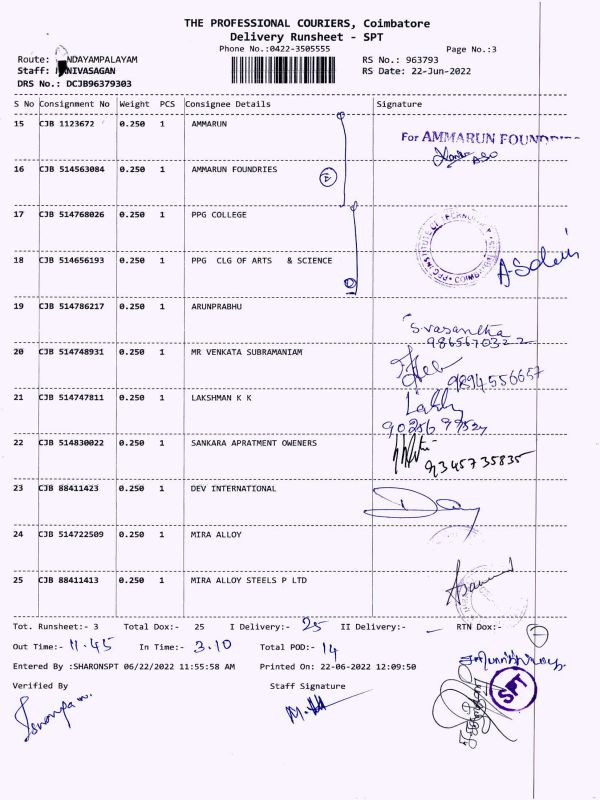 THE PROFESSIONAL COURIERS, Coimbatore
Delivery Runsheet - SPT
Phone No.:0422-3505555 Page No.:3
Route: NDAYAMPALAYAM RS No.: 963793
Staff: NIVASAGAN RS Date: 22-Jun-2022
DRS No.: DCJB96379303
S No Consignment No Weight PCS Consignee Details Signature
15 CJB 1123672 0.250 1 AMMARUN
For AMMARUN
16 CJB 514563084 0.250 1 AMMARUN FOUNDRIES
17 CJB 514768026 0.250 1 PPG COLLEGE
18 CJB 514656193 0.250 1 PPG CLG OF ARTS & SCIENCE
19 CJB 514786217 0.250 1 ARUNPRABHU
S.vasantha
9865670322
20 CJB 514748931 0.250 1 MR VENKATA SUBRAMANIAM
9894556657
21 CJB 514747811 0.250 1 LAKSHMAN K K
22 CJB 514830022 0.250 1 SANKARA APRATMENT OWENERS
9345735835
23 CJB 88411423 0.250 1 DEV INTERNATIONAL
24 CJB 514722509 0.250 1 MIRA ALLOY
25 CJB 88411413 0.250 1 MIRA ALLOY STEELS P LTD
Tot. Runsheet:- 3 Total Dox:- 25 I Delivery:- 25 II Delivery:- — RTN Dox:- –
Out Time:- 11.45 In Time:- 3.10 Total POD:- 14
Entered By :SHARONSPT 06/22/2022 11:55:58 AM Printed On: 22-06-2022 12:09:50
Verified By Staff Signature
SPT